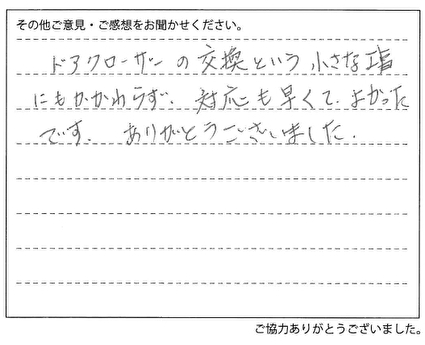 その他ご意見・ご感想をお聞かせください。
ドアクローザーの交換という小さな工事
にもかかわらず、対応も早くて、よかった
です。ありがとうございました。
ご協力ありがとうございました。